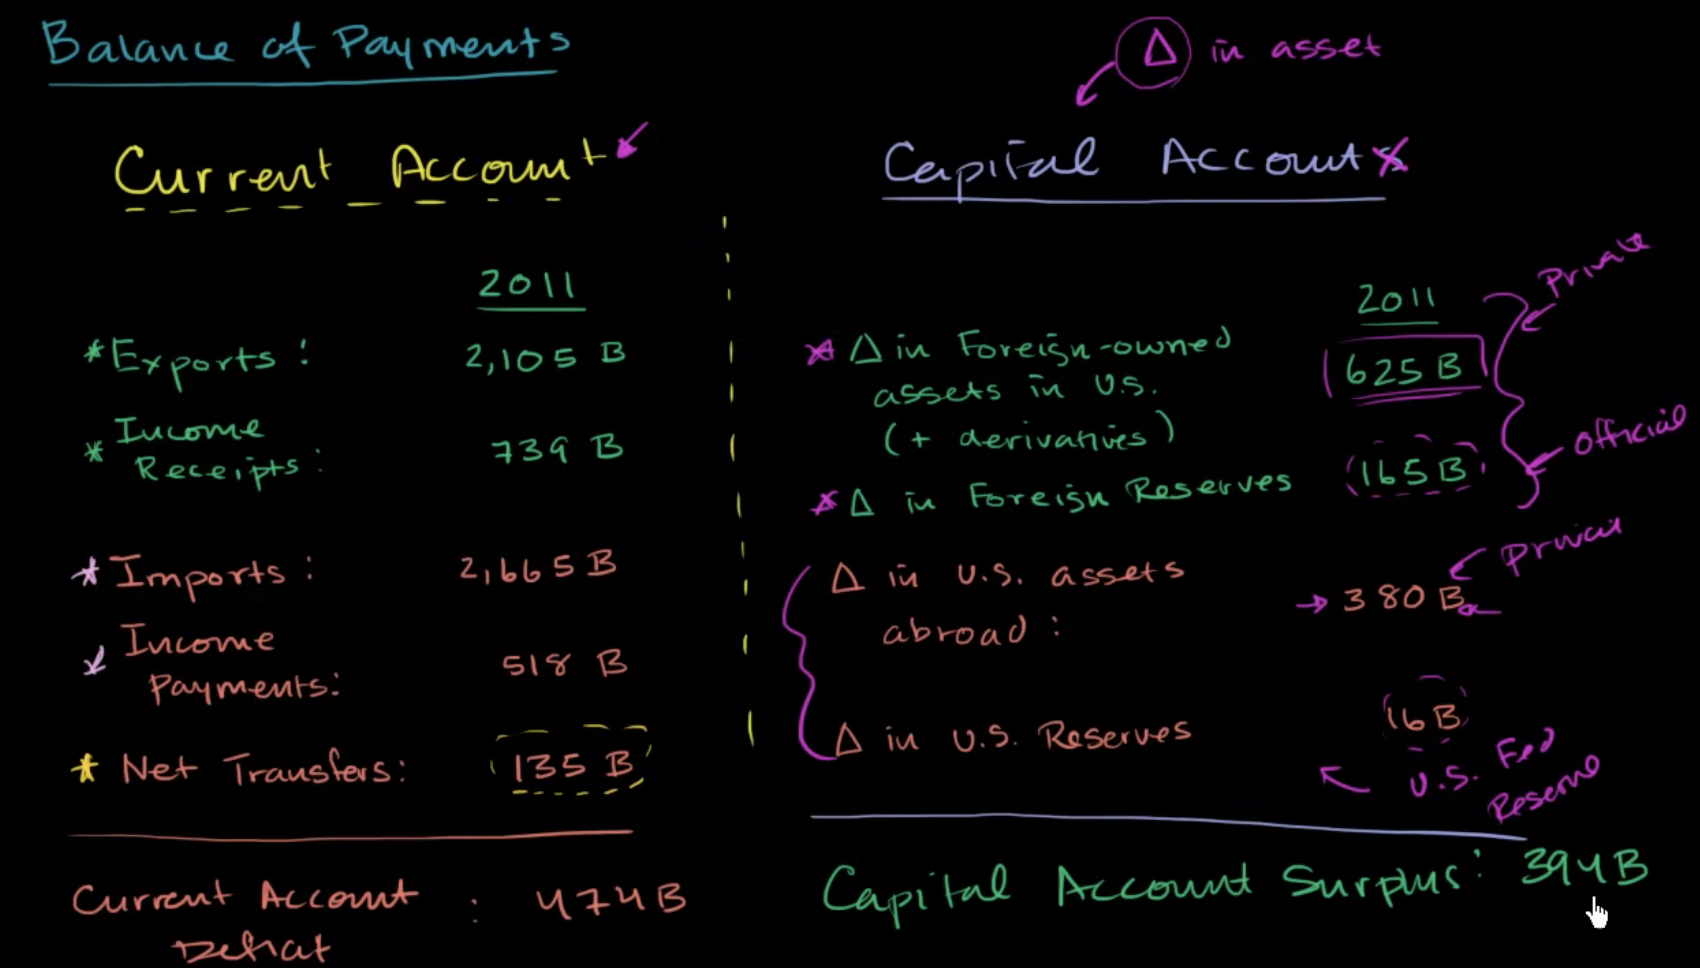 Balance of Payments
Δ in asset
Current Account
Capital Account
2011
*Exports: 2,105 B
* Income
Receipts: 739 B
* Imports: 2,665 B
* Income
Payments: 518 B
* Net Transfers: 135 B
Current Account : 474B
Deficit
2011
* Δ in Foreign-owned 625 B
assets in U.S.
(+ derivatives)
* Δ in Foreign Reserves 165B
Private
Official
Δ in U.S. assets
abroad : → 380 B
Private
Δ in U.S. Reserves 16B
U.S. Fed
Reserve
Capital Account Surplus: 394B